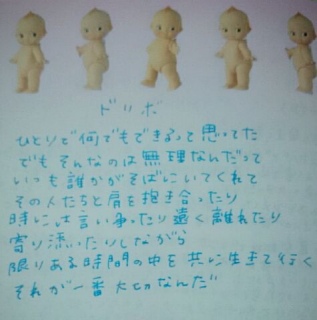 ドリボ
ひとりで何でもできるって思ってた
でもそんなのは無理なんだって
いつも誰かがそばにいてくれて
その人たちと肩を抱き合ったり
時には言い争ったり遠く離れたり
寄り添ったりしながら
限りある時間の中を共に生きて行く
それが一番大切なんだ